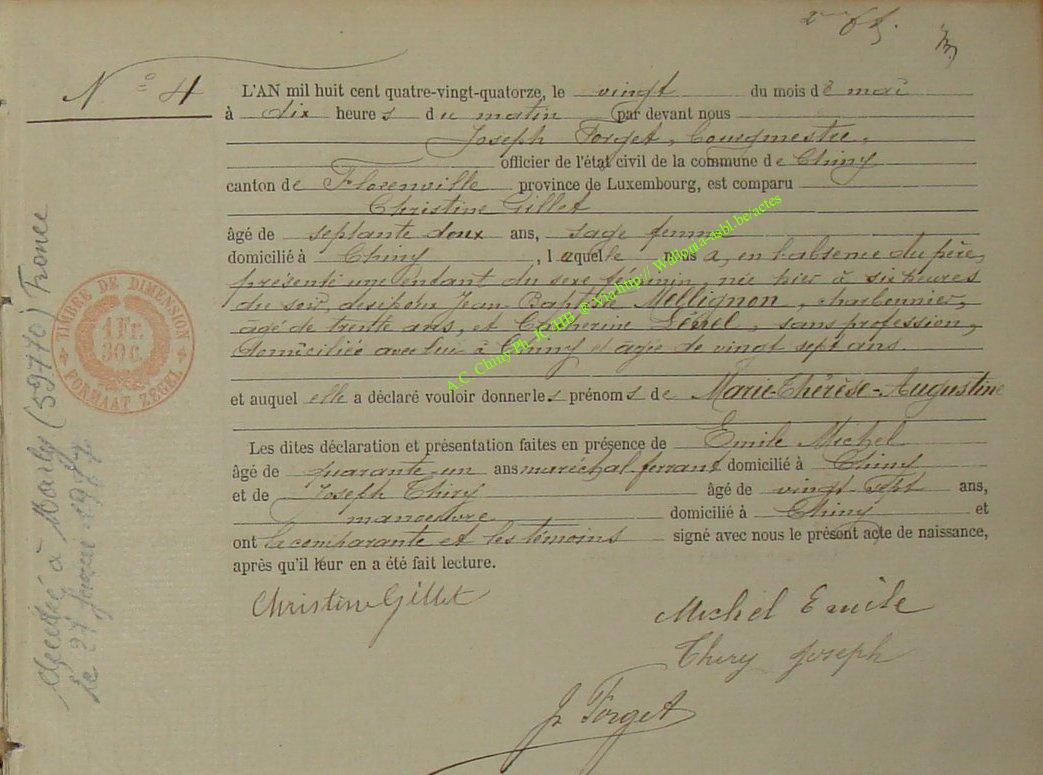 N° 4
L'AN mil huit cent quatre-vingt-quatorze, le vingt du mois de mai
à dix heures du matin par devant nous
Joseph Forget, Bourgmestre,
officier de l'état civil de la commune de Chiny
canton de Florenville province de Luxembourg, est comparu
Christine Gillet
âgé de septante deux ans, sage femme
domicilié à Chiny, laquelle nous a, en l'absence du père,
présenté un enfant du sexe féminin, née hier à six heures
du soir, des époux Jean Baptiste Mellignon, charbonnier,
âgé de trente ans, et Catherine sans profession,
domiciliée avec lui à Chiny et agée de vingt sept ans.
et auquel elle a déclaré vouloir donner les prénoms de Marie-Thérèse-Augustine
Les dites déclaration et présentation faites en présence de Emile Michel
âgé de quarante-un ans maréchal ferrant domicilié à Chiny
et de Joseph Thiry âgé de vingt sept ans,
manoeuvre domicilié à Chiny et
ont la comparante et les témoins signé avec nous le présent acte de naissance,
après qu'il leur en a été fait lecture.
Christine Gillet
Michel Emile
Thiry Joseph
J. Forget
TIMBRE DE DIMENSION
1 Fr.
30 c.
FORMAAT ZEGEL
Décédée à Marly (59770) France
le 27 1987
A.C. Chiny-Ph. JC HB @ Via http// Wallonia-asbl.be/actes